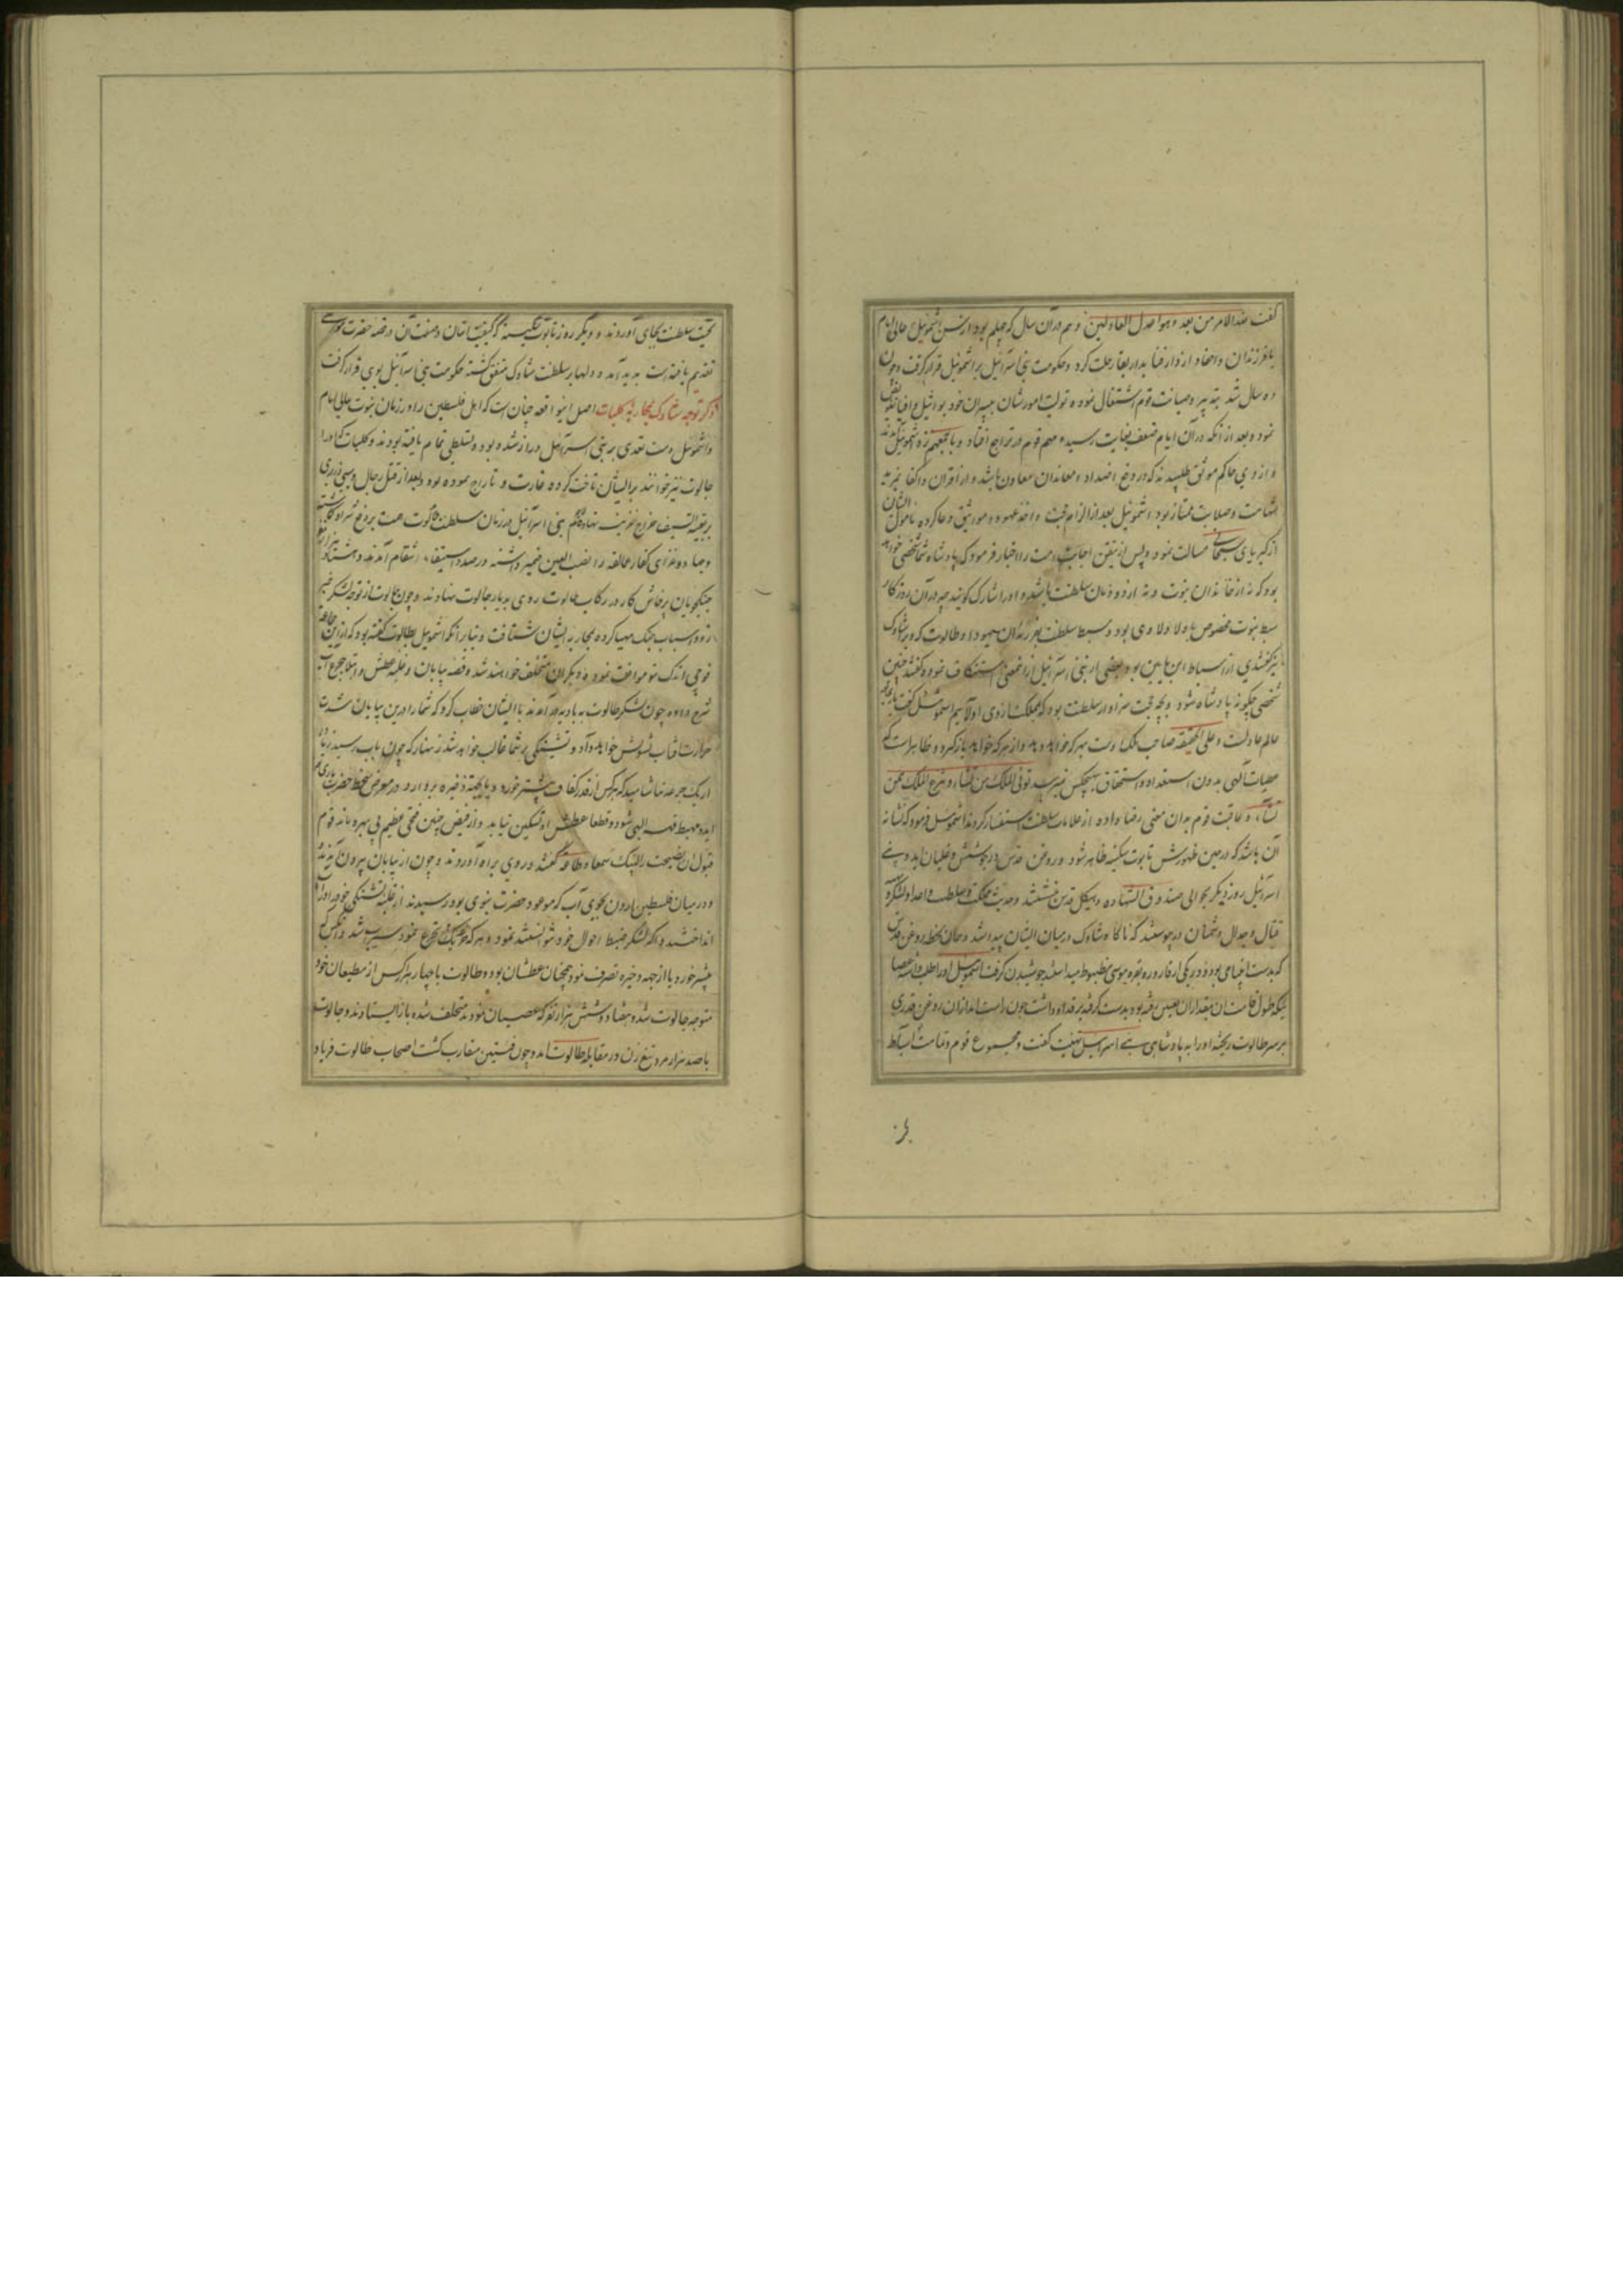 کفت هذا الامر من بعد و هو اعدل العادلین و هم در آن سال که چهلم بود از سن اشموئیل عالی امام
با فرزندان و احفاد از دار فنا بدار بقا رحلت کرد و حکومت بنی اسرائیل بر اشموئیل قرار کرفت و چون
ده سال شد بتدبیر و صیانت قوم اشتغال نموده تولیت امورشان بپسران خود یوائیل و افیا
نمود و بعد از آنکه در آن ایام ضعف بغایت رسید و مهم قوم در تراجع افتاد
و از وی حاکم موثق طلبیدند که در دفع اضداد و معاندان معاون باشد و از اقران و اکفا بمزید
شهامت و صلابت ممتاز بود اشموئیل بعد از الزام حجت و اخذ عهود و مواثیق دعا کرده
از کبریای سبحانی مسالت نمود و پس از تیقن اجابت امت را اخبار فرمود که پادشاه شما شخصی خواهد
بود که نه از خاندان نبوت و نه از دودمان سلطنت باشد و او را شارک کویند چه در آن روزکار
سبط نبوت مخصوص باولاد لاوی بود و سبط سلطنت بفرزندان یهودا و طالوت که ویرا شاوک
نیز کفتندی از اسباط ابن یامین بود بعضی از بنی اسرائیل ازین معنی استنکاف نموده کفتند چنین
شخصی چکونه پادشاه شود و بچه حجت سزاوار سلطنت بود که مملکت از وی اولاییم اشموئیل کفت
عالم عادلست و علی الحقیقه صاحب ملک اوست بهر که خواهد دهد و از هر که خواهد باز کیرد و ظاهر است که
عطیات الهی بدون استعداد و استحقاق بهیچکس نمیرسد توتی الملک من تشاء و تنزع الملک ممن
تشاء و عاقبت قوم بدان معنی رضا داده از علامات سلطنت استفسار کردند اشموئیل فرمود که نشانه
آن باشد که در حین ظهورش تابوت سکینه ظاهر شود و روغن قدس در جوشش و غلیان آید و بنی
اسرائیل روز دیکر بحوالی صندوق الشهاده و هیکل قدس نشستند و حدیث مملکت و سلطنت و اعداد لشکر و
قتال و جدال دشمنان در پیوستند که ناکاه شاوک در میان ایشان پیدا شد و همان لحظه روغن قدس
که بدست انبیا می بود و در یکی از قاروره بقره موسی مضبوط میداشتند جوشیدن کرفت اشموئیل او را طلب داشته عصا
بر سر طالوت ریخته او را به پادشاهی بنی اسرائیل تهنیت کفت و مجموع قوم و تمامت اسباط
تحیت سلطنت بجای آوردند و دیکر روز تابوت سکینه که کیفیت اتیان و صفت آن در قصه حضرت موسی
تقدیم یافته است پدید آمد و دلها بر سلطنت شاوک متفق کشته حکومت بنی اسرائیل بوی قرار کرفت
ذکر توجه شاوک بمحاربه کلیات اصل این واقعه چنان است که اهل فلسطین را در زمان نبوت عالی امام
و اشموئیل دست تعدی بر بنی اسرائیل دراز شده بود و تسلطی تمام یافته بودند و کلیات که او را
جالوت نیز خوانند بر ایشان تاخت کرده غارت و تاراج نموده بود و بعد از قتل رجال و سبی ذراری
بر بقیة السیف خراج نهاده بنی اسرائیل در زمان سلطنت طالوت همت بر دفع شر او
و جهاد و غزای کفار عمالقه را نصب العین ضمیر داشته در صدد استیفاء انتقام آمدند و هشتاد
جنکجویان پرخاش کار در رکاب طالوت روی به دیار جالوت نهادند و چون جالوت از توجه لشکر خبر
زود اسباب جنک مهیا کرده بمحاربه ایشان شتافت و بنابر آنکه اشموئیل بطالوت کفته بود که ازین
فوجی اندک بتو موافقت نموده و دیکران متخلف خواهند شد و قصه بیابان و غلبه عطش و
شرح داده چون لشکر طالوت به بادیه در آمدند با ایشان خطاب کرد که شما را درین بیابان شدت
حرارت آفتاب تشویش خواهد داد و تشنکی بر شما غالب خواهد شد زنهار که چون بآب رسید زیاده
از یک جرعه نیاشامید که هر کس از قدر کفاف بیشتر خورد و یا بجهة ذخیره بردارد در معرض سخط حضرت
آید و مهبط قهر الهی شود و قطعا عطش او تسکین نیابد و از فیض چنین فتحی عظیم بی بهره ماند قوم
قبول آن نصیحت را لبیک سمعا و طاعة کفتند و روی براه آوردند و چون از بیابان بیرون آمدند
و در میان فلسطین و اردن بجوی آب که موعود حضرت نبوی بود رسیدند از غلبه تشنکی خود را در آب
انداختند و اکثر لشکر ضبط احوال خود نتوانستند نمود و هر که بیک تجرع نمود سیراب شد و آنکس که
بیشتر خورد یا از جهه ذخیره تصرف نمود همچنان عطشان بود و طالوت با چهار هزار کس از مطیعان خود
متوجه جالوت شد و هفتاد و شش هزار نفر که عصیان نمودند متخلف شده باز ایستادند و جالوت
با صد هزار مرد تیغ زن در مقابله طالوت آمد و چون فئتین متقارب کشت اصحاب طالوت فریاد